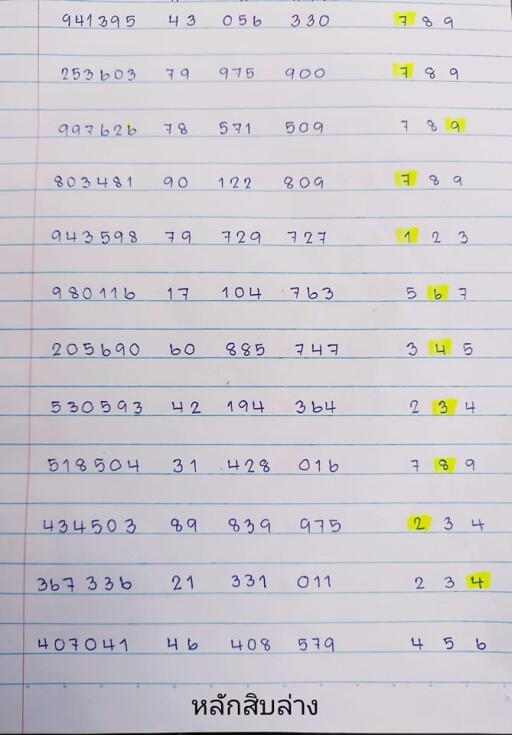 941395 43 056 330 7 8 9
253603 79 975 900 7 8 9
997626 78 571 509 7 8 9
803481 90 122 809 7 8 9
943598 79 729 727 1 2 3
980116 17 104 763 5 6 7
205690 60 885 747 3 4 5
530593 42 194 364 2 3 4
518504 31 428 016 7 8 9
434503 89 839 975 2 3 4
367336 21 331 011 2 3 4
407041 46 408 579 4 5 6
หลักสิบล่าง